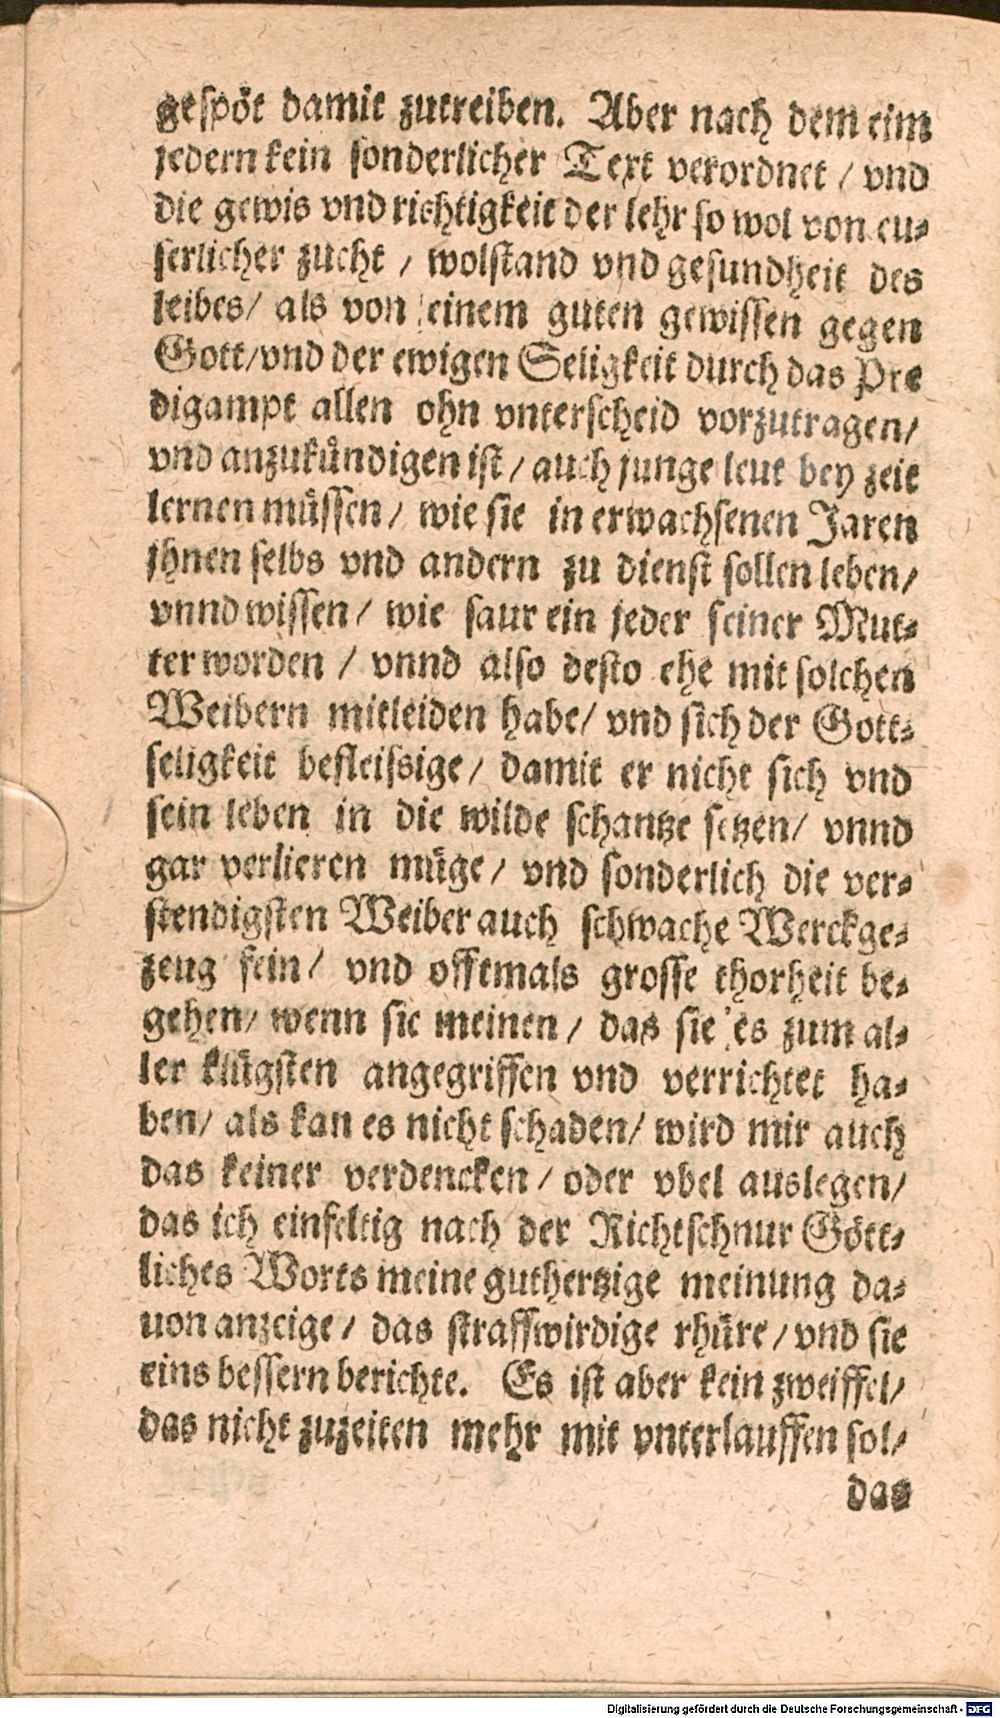 gespöt damit zutreiben. Aber nach dem eim
jedern kein sonderlicher Text verordnet / vnd
die gewis vnd richtigkeit der lehr so wol von eu-
serlicher zucht / wolstand vnd gesundheit des
leibes/ als von einem guten gewissen gegen
Gott/vnd der ewigen Seligkeit durch das Pre
digampt allen ohn vnterscheid vorzutragen/
vnd anzukündigen ist / auch junge leut bey zeit
lernen müssen / wie sie in erwachsenen Jaren
jhnen selbs vnd andern zu dienst sollen leben/
vnnd wissen / wie saur ein jeder seiner Mut-
ter worden / vnnd also desto ehe mit solchen
Weibern mitleiden habe/ vnd sich der Gott-
seligkeit befleissige / damit er nicht sich vnd
sein leben in die wilde schantze setzen/ vnnd
gar verlieren müge / vnd sonderlich die ver-
stendigsten Weiber auch schwache Werckge-
zeug sein / vnd offtmals grosse thorheit be-
gehen/ wenn sie meinen / das sie es zum al-
ler klügsten angegriffen vnd verrichtet ha-
ben/ als kan es nicht schaden/ wird mir auch
das keiner verdencken / oder vbel auslegen/
das ich einfeltig nach der Richtschnur Gött-
liches Worts meine guthertzige meinung da-
uon anzeige / das straffwirdige rhüre / vnd sie
eins bessern berichte. Es ist aber kein zweiffel/
das nicht zuzeiten mehr mit vnterlauffen sol/
das
Digitalisierung gefördert durch die Deutsche Forschungsgemeinschaft - DFG